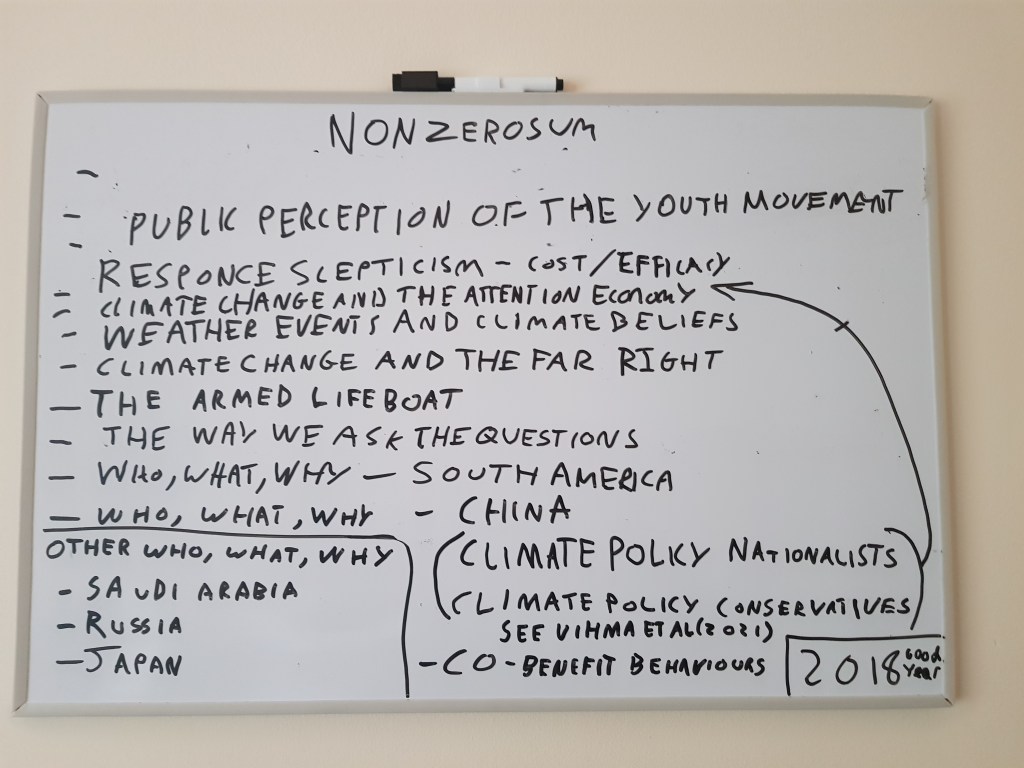 NONZEROSUM
-
- PUBLIC PERCEPTION OF THE YOUTH MOVEMENT
-
RESPONCE SCEPTICISM - COST/EFFICACY
- CLIMATE CHANGE AND THE ATTENTION ECONOMY
- WEATHER EVENTS AND CLIMATE BELIEFS
- CLIMATE CHANGE AND THE FAR RIGHT
- THE ARMED LIFEBOAT
- THE WAY WE ASK THE QUESTIONS
- WHO, WHAT, WHY - SOUTH AMERICA
- WHO, WHAT, WHY - CHINA
OTHER WHO, WHAT, WHY
- SAUDI ARABIA
- RUSSIA
- JAPAN
(CLIMATE POLICY NATIONALISTS
CLIMATE POLICY CONSERVATIVES)
SEE VIHMA ET AL (2021)
- CO-BENEFIT BEHAVIOURS
2018 GOOD YEAR